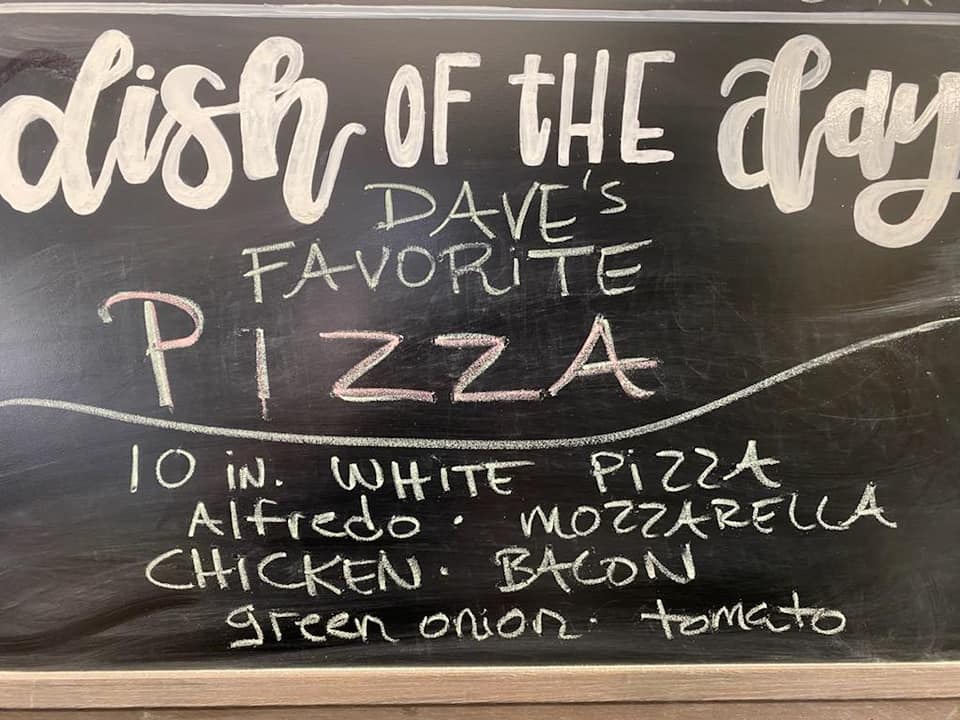 dish OF tHE day
DAVE'S
FAVORiTE
PIZZA
10 iN. WHITE PiZZA
Alfredo · MOZZARELLA
CHICKEN · BACON
green onion · tomato